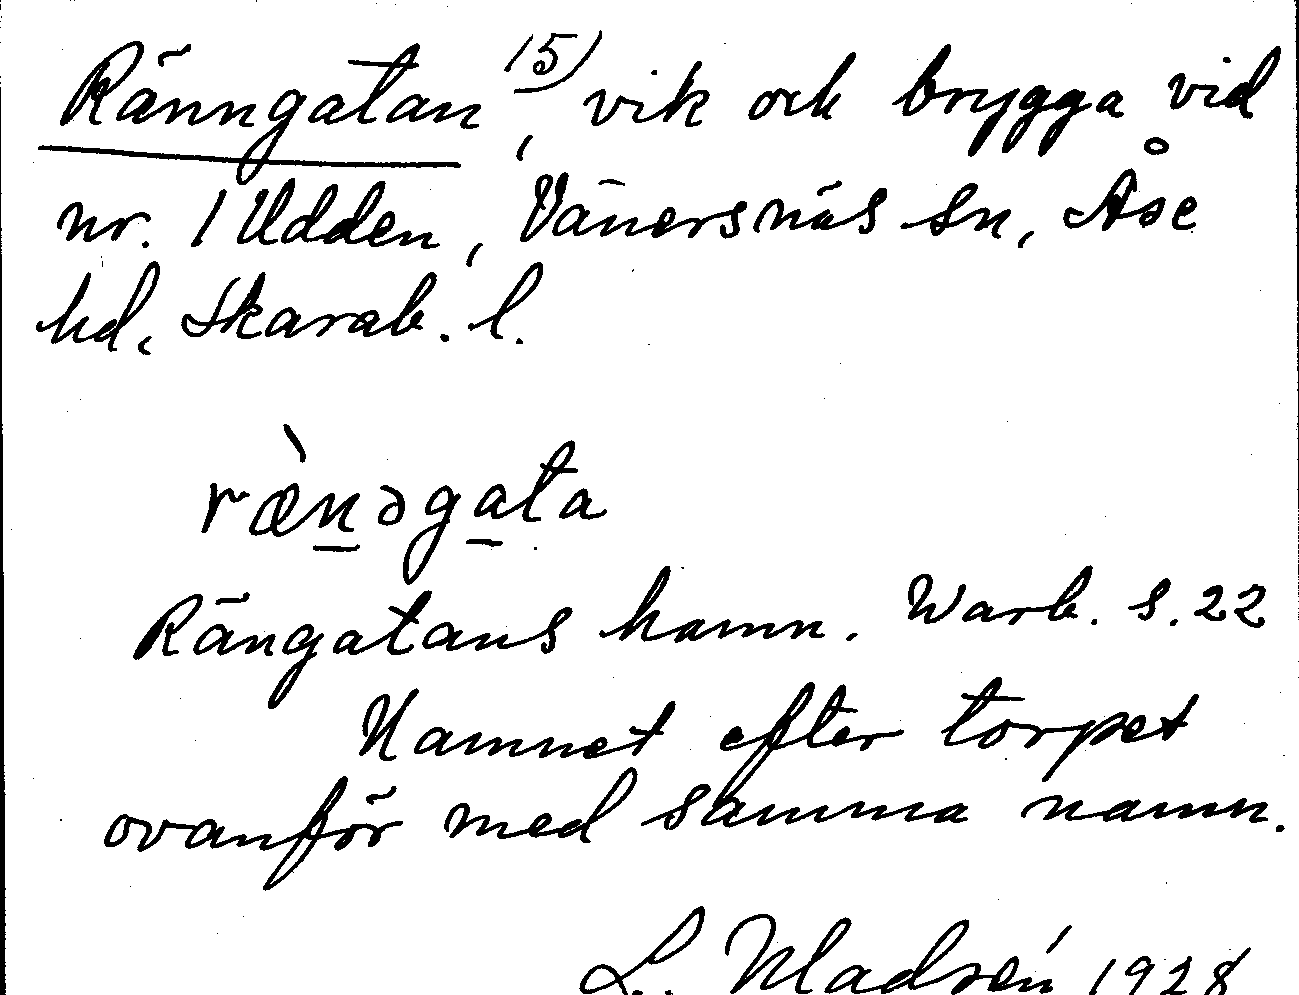 Ränngatan 15), vik och brygga vid
nr. 1 Udden, Vänersnäs sn, Åse
hd, Skarab. l.
ræ̀nəgata
Rängatans hamn. Warb. s. 22
Namnet efter torpet
ovanför med samma namn.
L. Madsén 1928